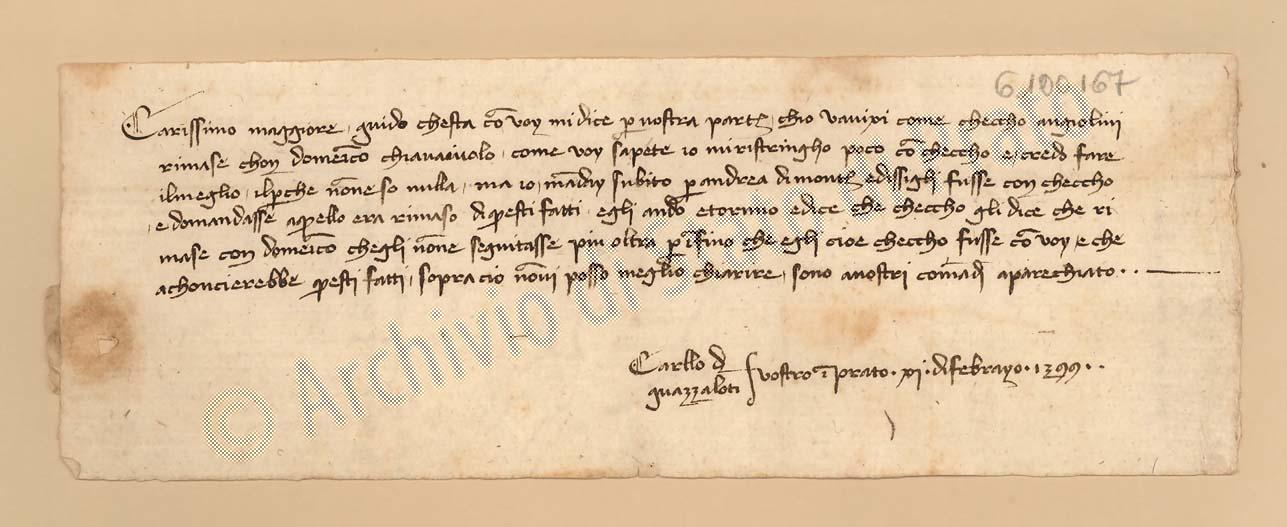 6.100 167
Carissimo maggiore, guido chesta cō voy mi dice p vostra parte, chio vavixi come checcho angiolini
rimase chon domeīco chiavaiuolo, come voy sapete io mi ristringho poco cō checcho e, credo fare
il meglio, ilpche nōne so nulla, ma io, māday subito p andrea di monte edissigli fusse con checcho
e domandasse a era rimaso di questi fatti, egli ando e torrno e dice che checcho gli dice che ri
mase con domeīco chegli nōne seguitasse piu oltra p īfino che egli cioe checcho fusse cō voy, e che
achoncierebbe questi fatti, sopra cio nōvi posso meglio chiarire, sono a vostri comādi aparechiato..
Carllo di
guazzaloti
vostro ī prato. xi. di febrayo. 1399..
© Archivio di Stato di Prato